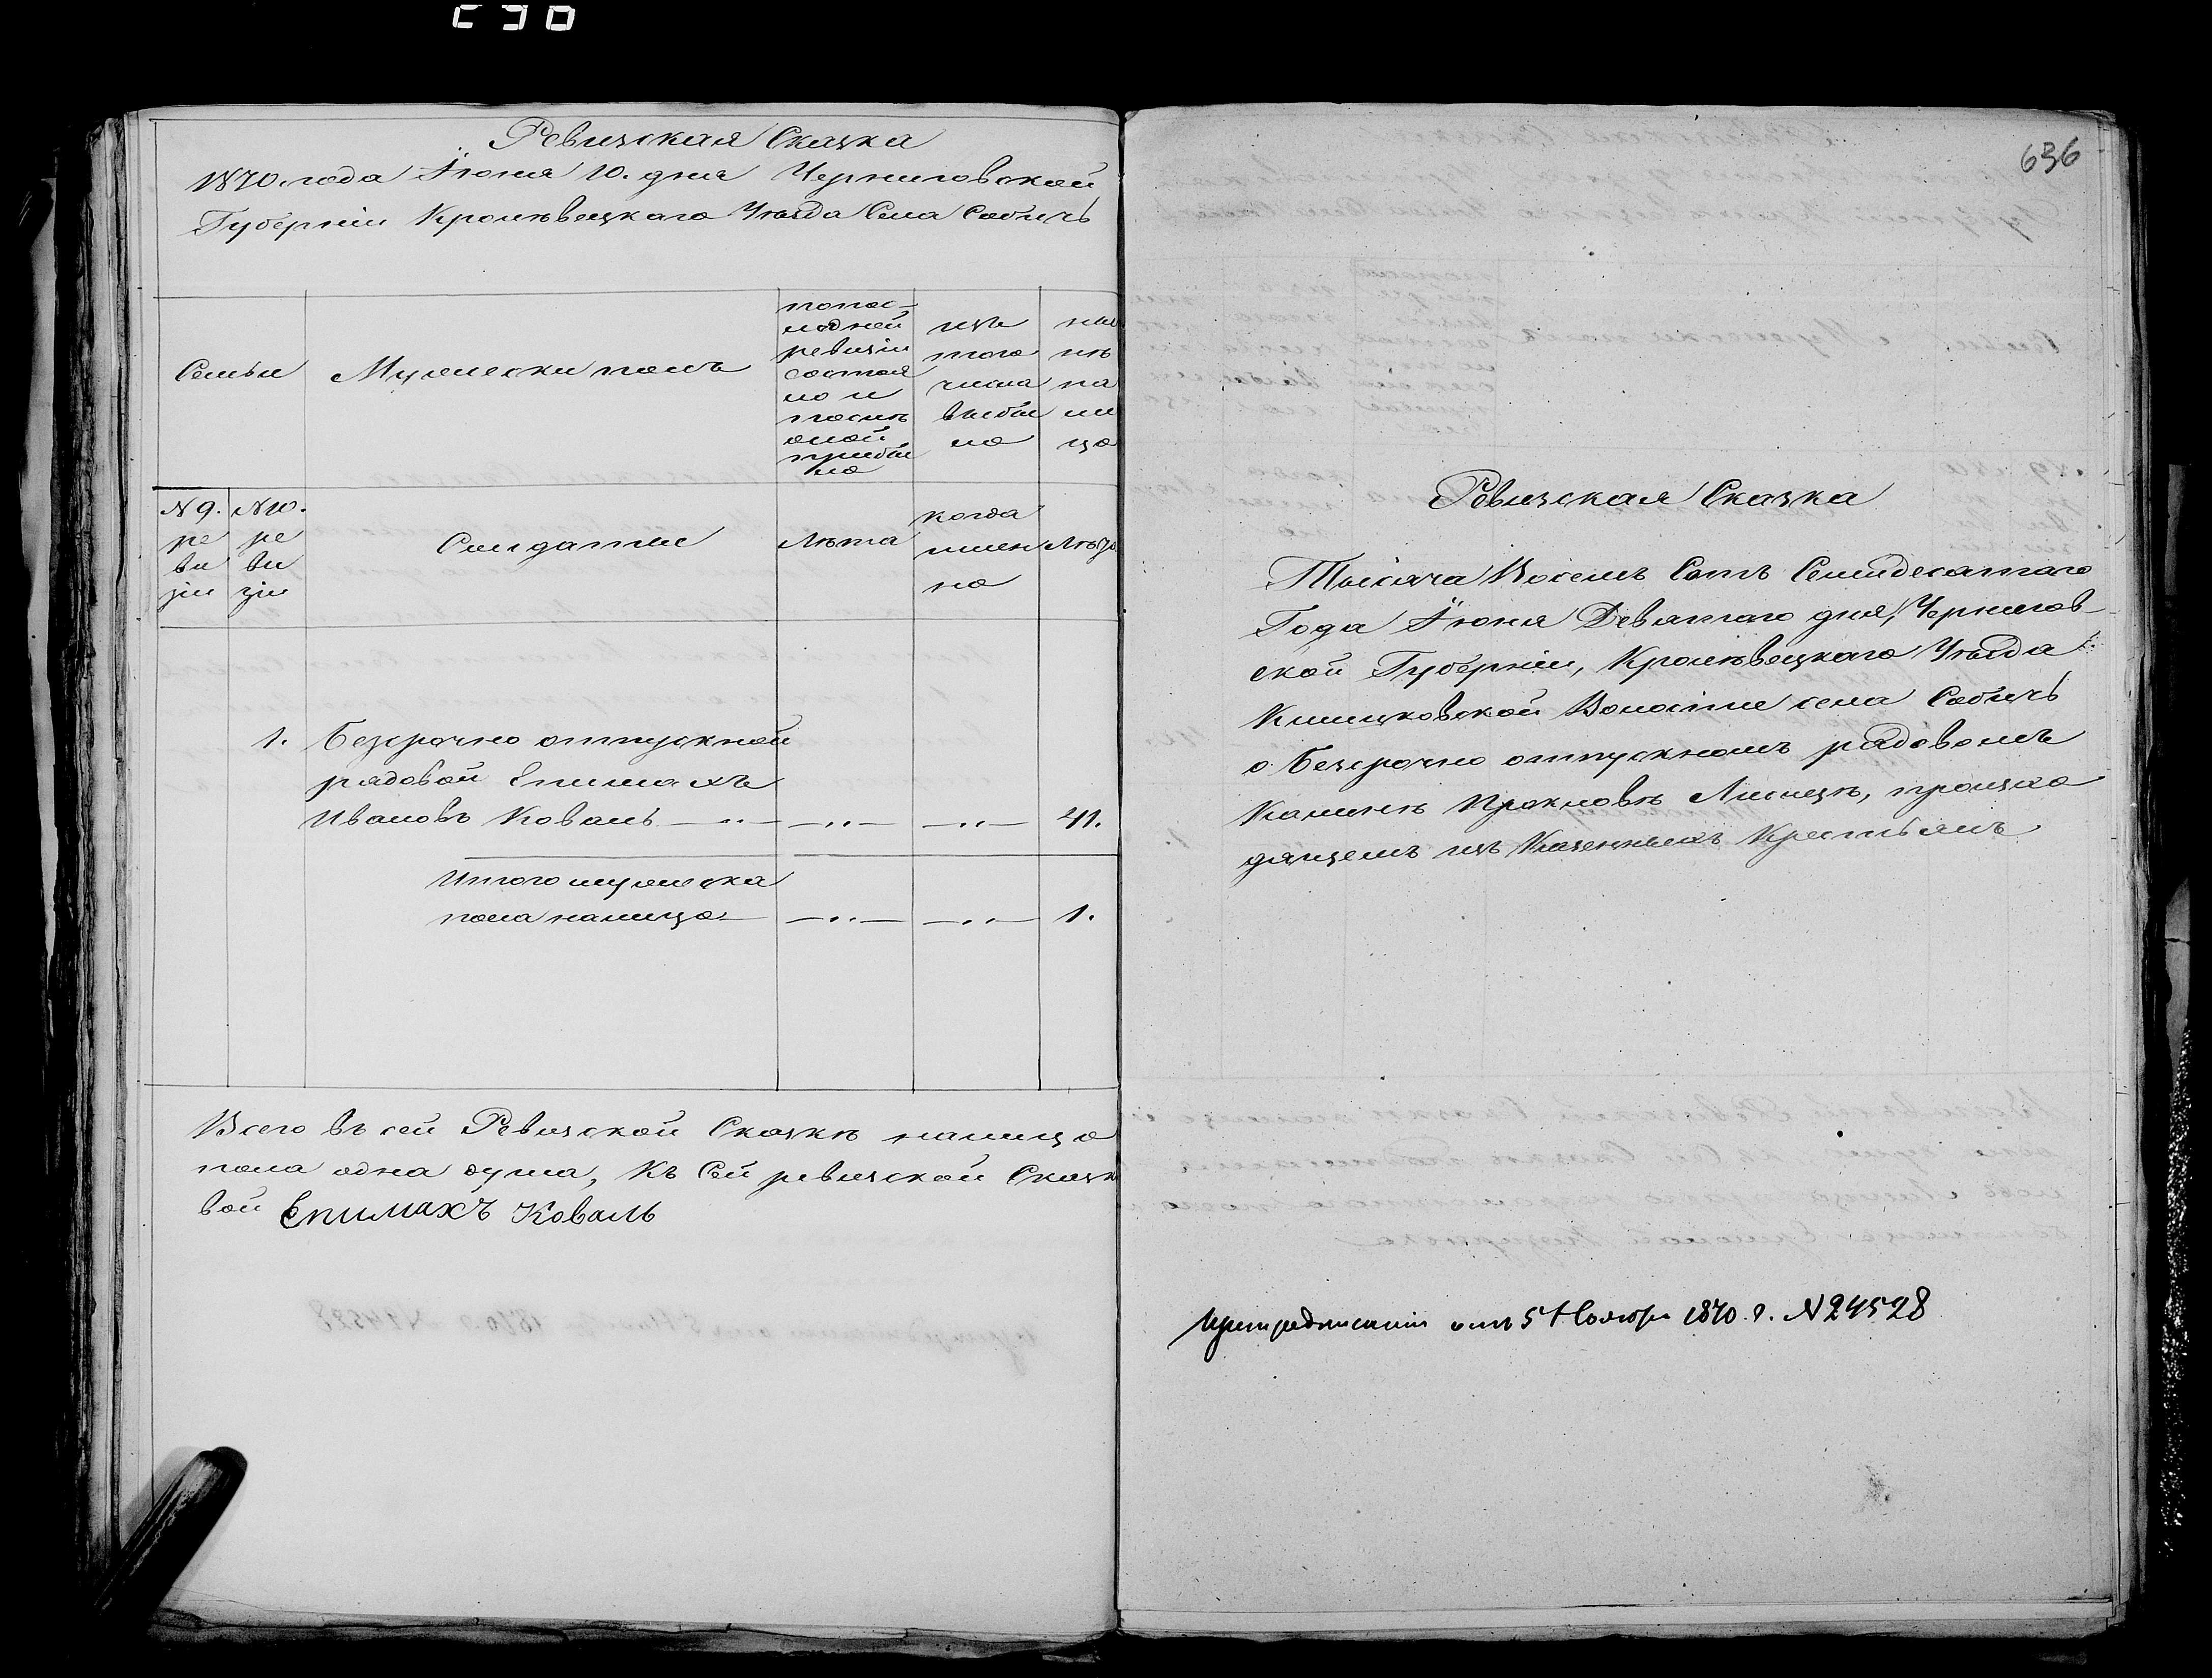 Ревизская Сказка
1870. года Іюня 10. дня Черниговской
Губерніи Кролѣвецкаго Уѣзда Села Собичъ
Семьи
Мужески полъ
попос-
лѣдней
ревизіи
состоя
ло и
послѣ
оной
прибы
ло
изъ
того
числа
выбы
ло
ны
нѣ
на
ли
цо
N 9.
ре
ви
зіи
N 10.
ре
ви
зіи
Солдатие
Лѣта
когда
имен
но
Лѣта
1. Безсрочно отпускной
рядовой Епимахъ
Ивановъ Коваль —„— —„— —„— 41.
Итого мужеска
пола налицо — —„— —„— 1.
Всего въ сей Ревизской Сказкѣ налицо
пола одна душа, Къ Сей ревизской Сказк
вой Епимахъ Коваль
636
Ревизская Сказка
Тысяча Восемь Сотъ Семидесятаго
Года Іюня Девятаго дня, Чернигов-
ской Губерніи, Кролѣвецкаго Уѣзда
Клишковской Волости села Собичъ
о Безсрочно отпускномъ рядовомъ
Калинѣ Прокповѣ Лисицѣ, происхо
дящемъ изъ Казенныхъ Крестьянъ
При предписаніи отъ 5 Ноября 1870. г. N 24528